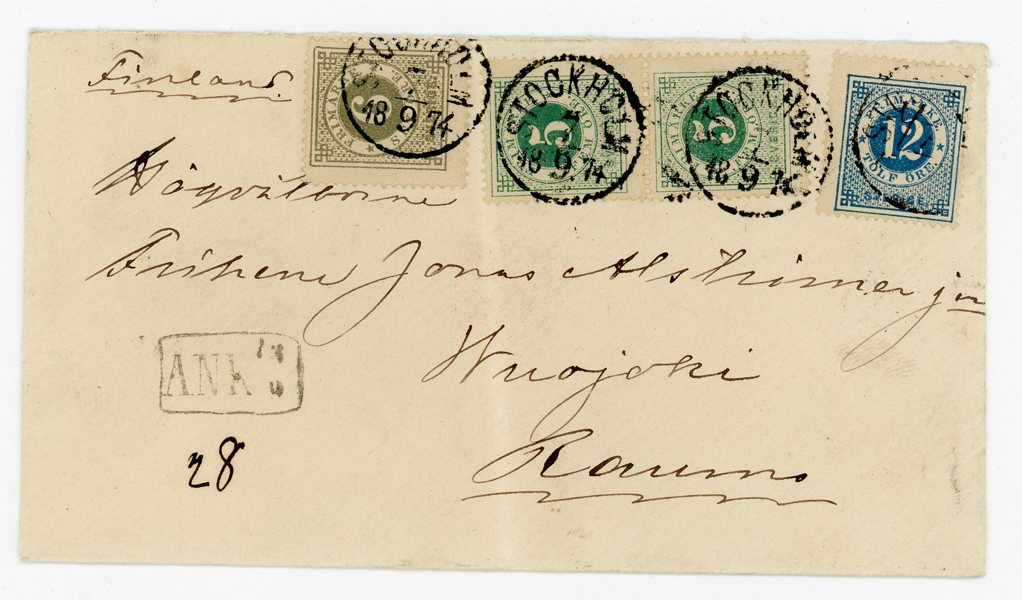 Finland.
STOCKHOLM 18 9 74
STOCKHOLM 18 9 74
STOCKHOLM 18 9 74
FRIMÄRKE
5
5
12
TOLF ÖRE
Högvälborne
Frihene Jonas Alströmer jr
Wuojoki
ANK
28
Raumo